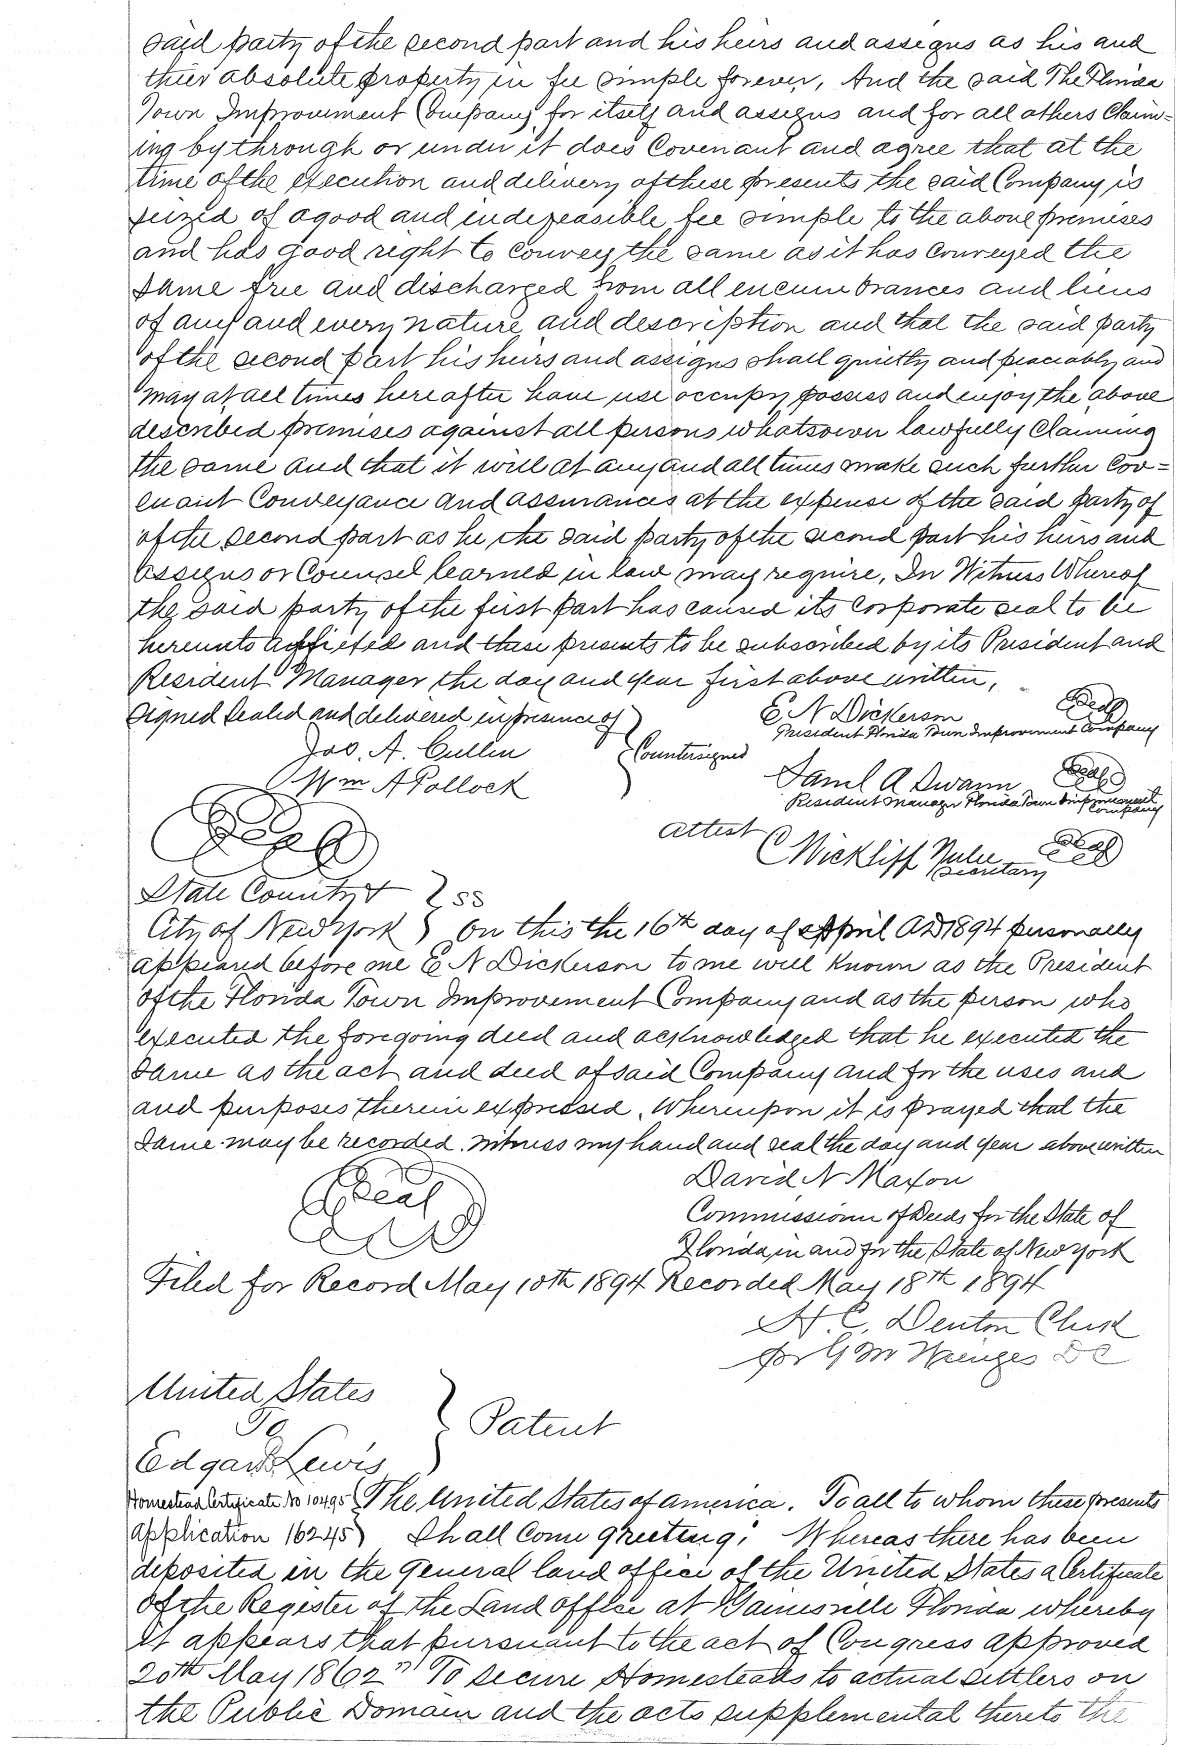 said party of the second part and his heirs and assigns as his and
their absolute property in fee simple forever, And the said The Florida
Town Improvement Company, for itself and assigns and for all others Claim=
ing by through or under it does Covenant and agree that at the
time of the execution and delivery of these presents the said Company is
seized of a good and indefeasible fee simple to the above premises
and has good right to convey the same as it has conveyed the
same free and discharged from all encumbrances and liens
of any and every nature and description and that the said party
of the second part his heirs and assigns shall quietly and peaceably and
may at all times hereafter have use occupy possess and enjoy the above
described premises against all persons whatsoever lawfully claiming
the same and that it will at any and all times make such further Cov=
enant Conveyance and assurances at the expense of the said party of
of the second part as he, the said party of the second part his heirs and
assigns or Counsel learned in law may require, In Witness Whereof
the said party of the first part has caused its Corporate seal to be
hereunto affixed and these presents to be subscribed by its President and
Resident Manager the day and year first above written,
Signed Sealed and delivered in presence of } E N Dickerson Seal
President Florida Town Improvement Company
Jas. A. Cullin } Countersigned
Wm A Pollock Saml A Swann Seal
Resident Manager Florida Town Improvement Company
Seal attest C Wickliff Seal
Secretary
State County & } SS
City of New York } On this the 16th day of April AD 1894 personally
appeared before me E N Dickerson to me well known as the President
of the Florida Town Improvement Company and as the person who
executed the foregoing deed and acknowledged that he executed the
same as the act and deed of said Company and for the uses and
and purposes therein expressed. Whereupon it is prayed that the
same may be recorded. Witness my hand and seal the day and year above written
Seal David N Maxon
Commissioner of Deeds for the State of
Florida, in and for the State of New York
Filed for Record May 10th 1894 Recorded May 18th 1894
H. C. Denton Clerk
pr G M DC
United States
To } Patent
Edgar Lewis
Homestead Certificate No 10495 } The United States of America. To all to whom these presents
Application 16245 } Shall Come greeting: Whereas there has been
deposited in the General land office of the United States a Certificate
of the Register of the Land office at Gainesville Florida whereby
it appears that pursuant to the act of Congress approved
20th May 1862 "To secure Homesteads to actual settlers on
the Public Domain and the acts supplemental thereto the